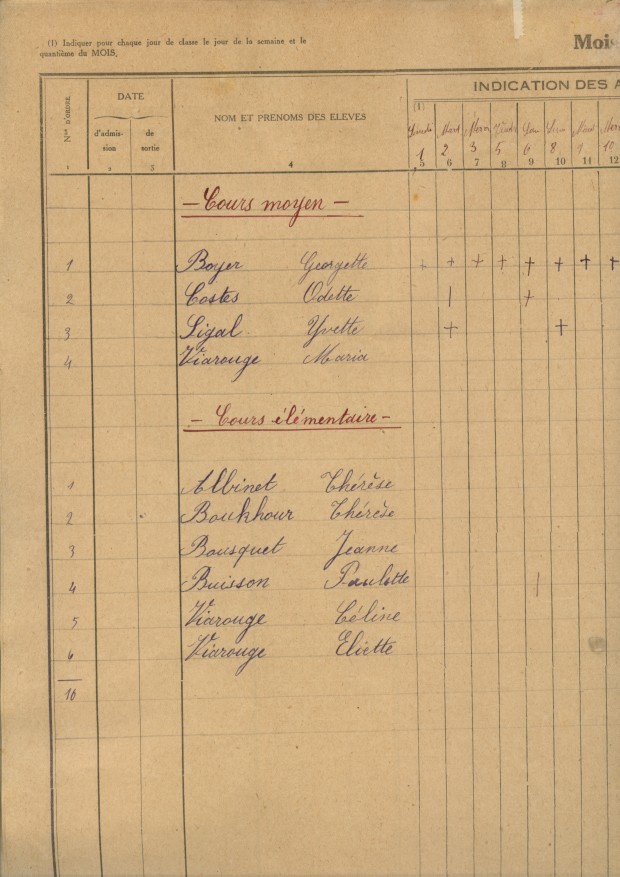 (1) Indiquer pour chaque jour de classe le jour de la semaine et le
quantième du MOIS.
Mois
Nos D'ORDRE
DATE
d'admission
de sortie
NOM ET PRÉNOMS DES ÉLÈVES
INDICATION DES A
(1)
Lundi Mard Vendr Lun Mard
1 2 3 5 6 8
1 2 3 4 5 6 7 8 9 10 11 12
— Cours moyen —
1 Boyer Georgette + + + + + + + +
2 Costes Odette | +
3 Sigal Yvette + +
4 Viarouge Maria
— Cours élémentaire —
1 Albinet Thérèse
2 Boukhour Thérèse
3 Bousquet Jeanne
4 Buisson Paulette |
5 Viarouge Céline
6 Viarouge Eliette
10